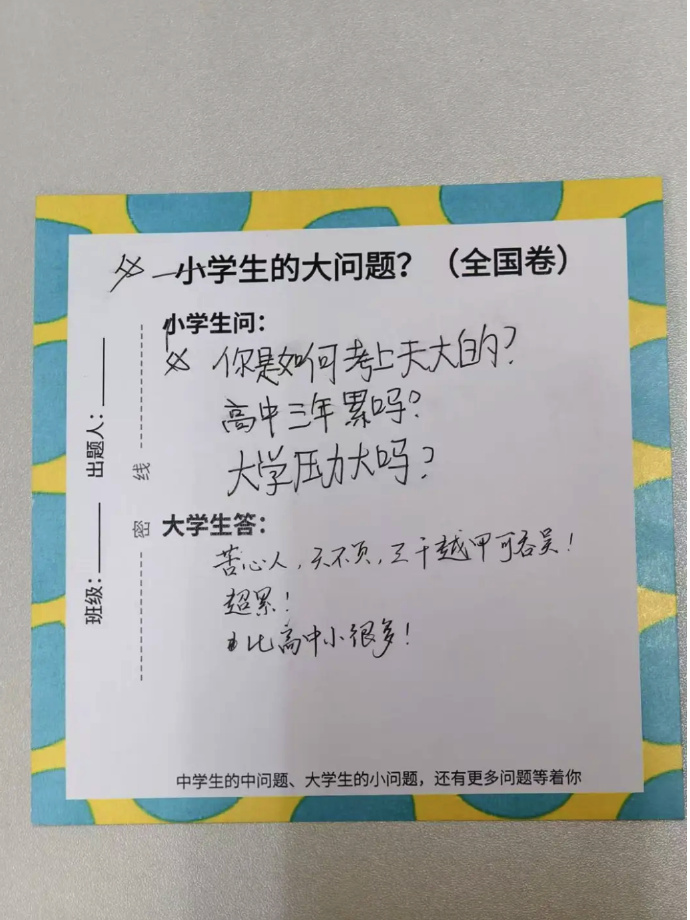 小学生的大问题？（全国卷）
小学生问：
你是如何考上天大的？
高中三年累吗？
大学压力大吗？
大学生答：
苦心人，天不负，三千越甲可吞吴！
超累！
比高中小很多！
出题人：
班级：
线
密
中学生的中问题、大学生的小问题，还有更多问题等着你